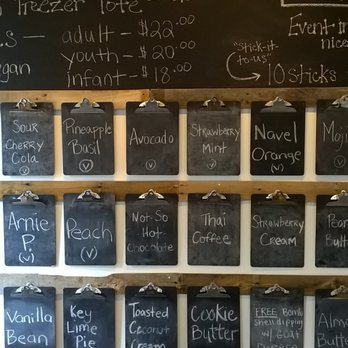 Freezer Tote
s — adult - $22.00
youth - $20.00
egan infant - $18.00
Event in
nice
"stick-it-
to-us"
10 sticks
Sour
Cherry
Cola
Pineapple
Basil
(V)
Avocado
(V)
Strawberry
Mint
(V)
Navel
Orange
(V)
Moji
Arnie
P.
(V)
Peach
(V)
Not-So
Hot
Chocolate
Thai
Coffee
Strawberry
Cream
Pean
Butt
Vanilla
Bean
Key
Lime
Pie
Toasted
Coconut
Cream
Cookie
Butter
FREE Bomb
shell dipping
w/ Gift
Almo
Butt